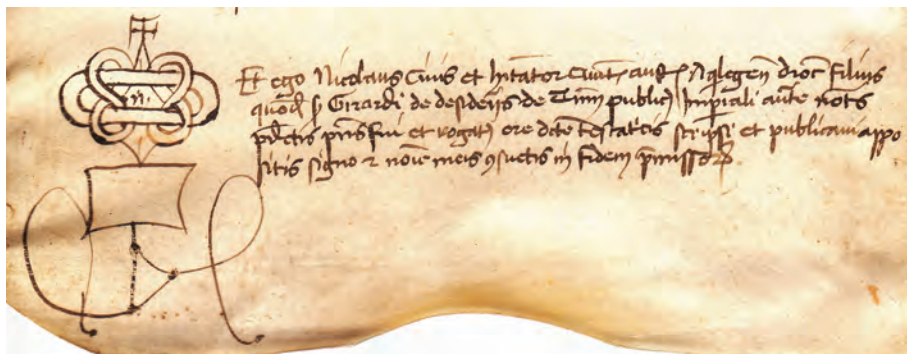 .n.
Et ego Nicolaus Civis et hitator Civit aust Aqlegen dioc filius
quod s Girardi de desiderijs de public Imperiali aucte nots
pdctis pns fui et rogat ore dcte testatcis scripsi et publicavi appo
sitis signo et noie meis 9suetis in fidem pmissor